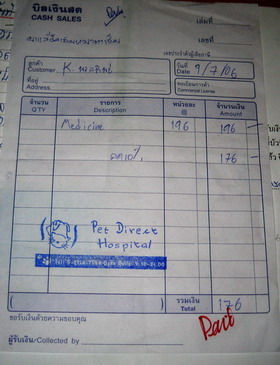 บิลเงินสด
CASH SALES
เล่มที่
เลขที่
เลขประจำตัวผู้เสียภาษี
ลูกค้า K.
Customer
วันที่ 9/7/06
Date
ที่อยู่
Address
ทะเบียนการค้า
Commercial License
จำนวน รายการ หน่วยละ จำนวนเงิน
QTY Description @ Amount
Medicine 196 196
ลด10% 176
Pet Direct
Hospital
รวมเงิน 176
Total
Paid
ขอรับเงินด้วยความขอบคุณ
ผู้รับเงิน/Collected by